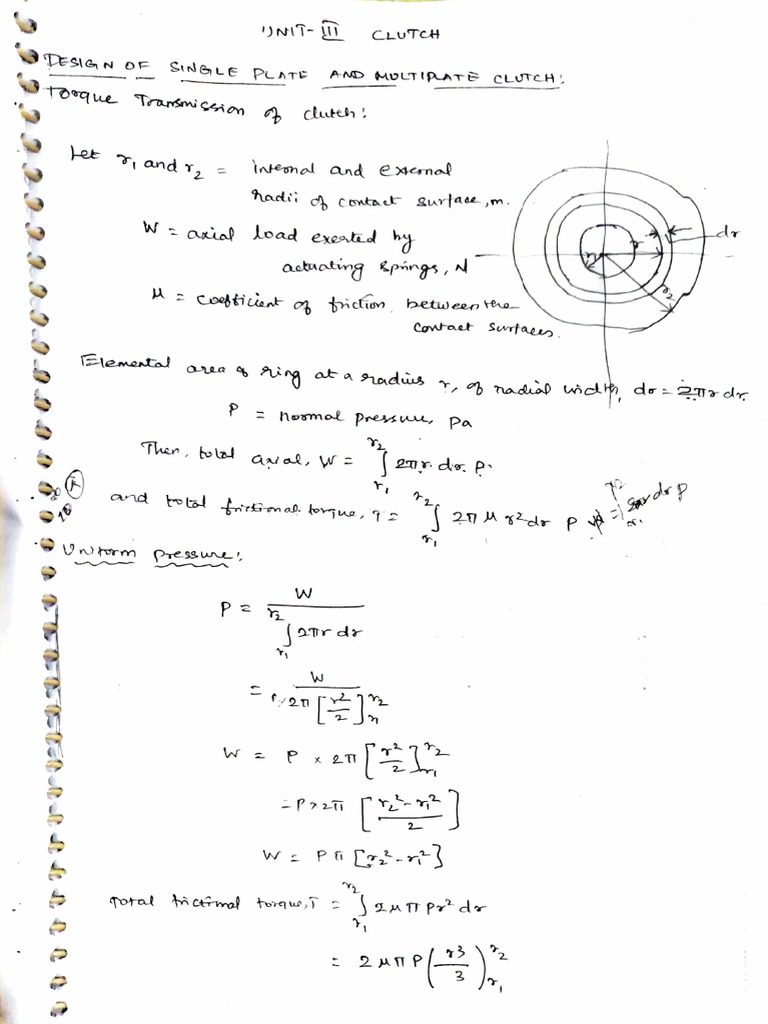 UNIT-III CLUTCH
DESIGN OF SINGLE PLATE AND MULTIPLATE CLUTCH:
Torque Transmission of clutch:
Let r₁ and r₂ = internal and external
radii of contact surface, m.
W = axial load exerted by
actuating springs, N
μ = coefficient of friction between the
contact surfaces.
r₁
r
dr
r₂
Elemental area of ring at a radius r, of radial width, dr = 2πr dr.
P = normal pressure, Pa
Then, total axial, W = ∫_{r₁}^{r₂} 2πr. dr. P.
and total frictional torque, T = ∫_{r₁}^{r₂} 2π μ r² dr P
Uniform pressure:
P = W / ∫_{r₁}^{r₂} 2πr dr
= W / 2π [r²/2]_{r₁}^{r₂}
W = P × 2π [r²/2]_{r₁}^{r₂}
= P × 2π [(r₂² - r₁²)/2]
W = Pπ [r₂² - r₁²]
Total frictional torque, T = ∫_{r₁}^{r₂} 2μπ Pr² dr
= 2μπP (r³/3)_{r₁}^{r₂}